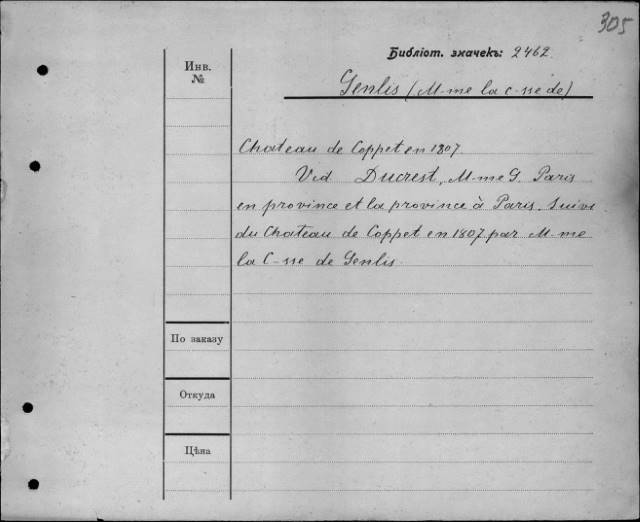 305
Библіот. значекъ: 2462.
Инв.
№
Genlis (M-me la c-sse de)
Chateau de Coppet en 1807.
Vid Ducrest, M-me G. Paris
en province et la province à Paris. Suivi
du Chateau de Coppet en 1807 par M-me
la C-sse de Genlis.
По заказу
Откуда
Цѣна